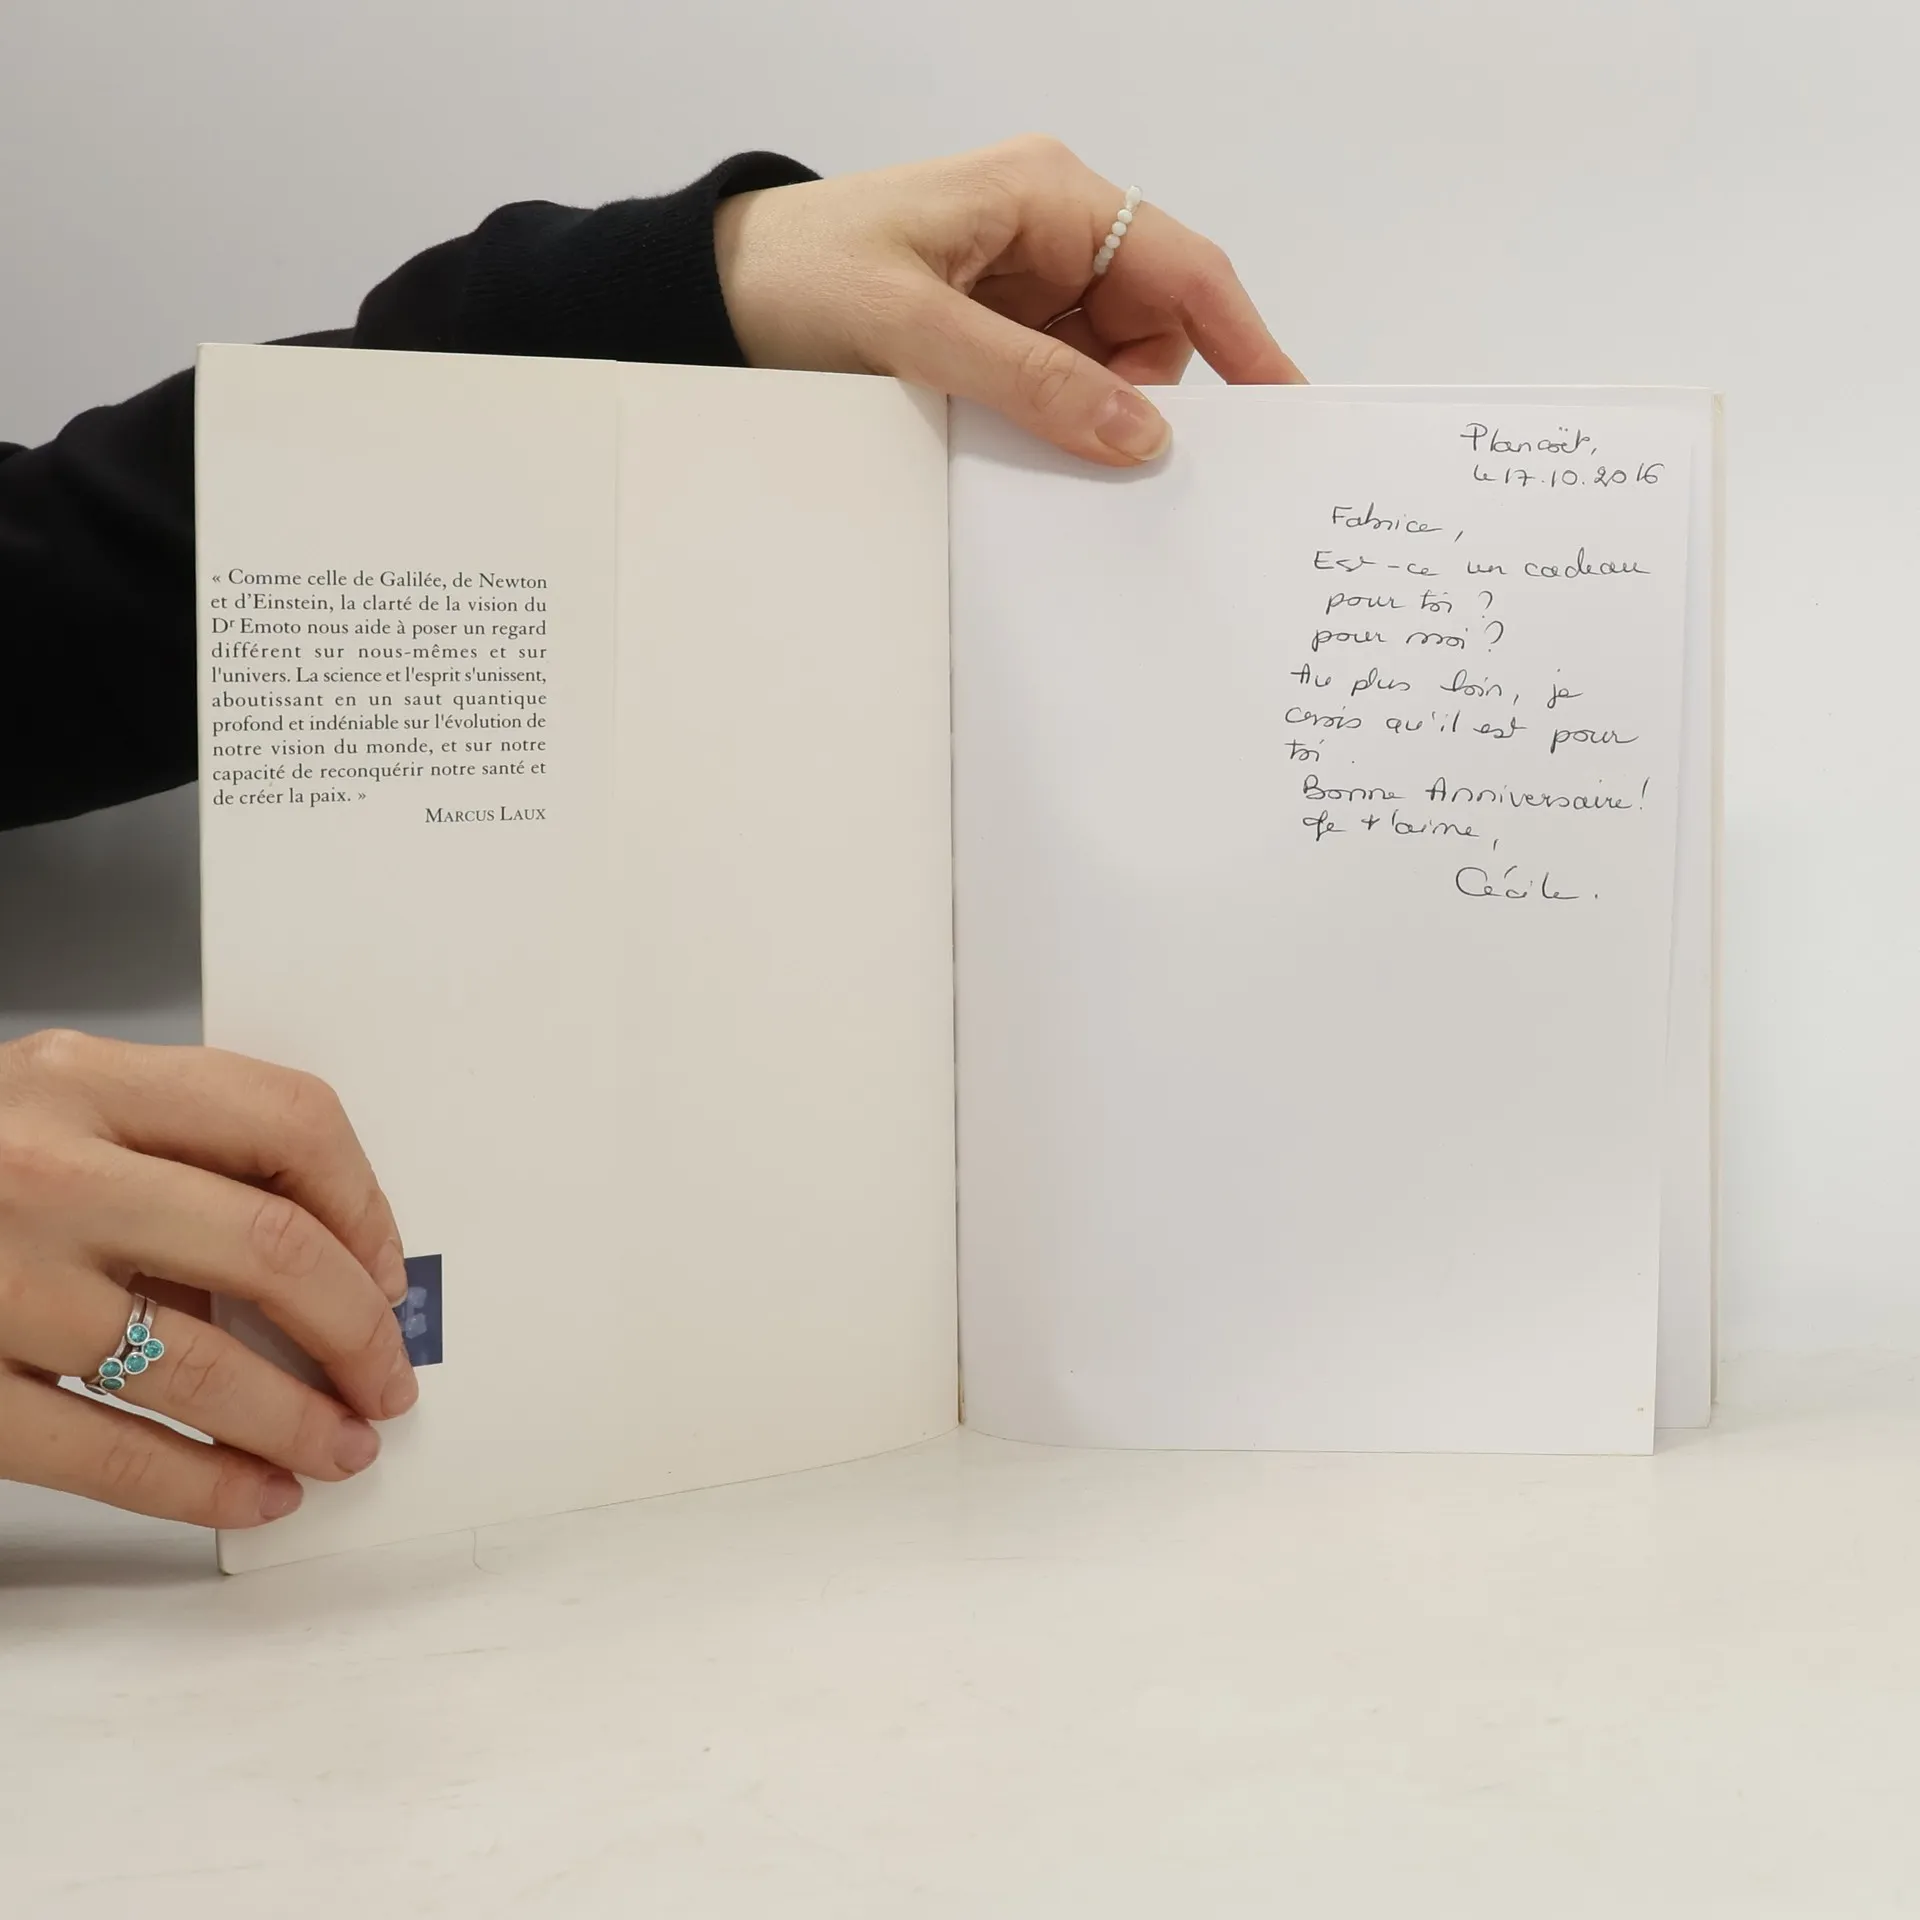 « Comme celle de Galilée, de Newton
et d'Einstein, la clarté de la vision du
Dr Emoto nous aide à poser un regard
différent sur nous-mêmes et sur
l'univers. La science et l'esprit s'unissent,
aboutissant en un saut quantique
profond et indéniable sur l'évolution de
notre vision du monde, et sur notre
capacité de reconquérir notre santé et
de créer la paix. »
MARCUS LAUX
Plancoët,
le 17.10.2016
Fabrice,
Est-ce un cadeau
pour toi ?
pour moi ?
Au plus loin, je
crois qu'il est pour
toi.
Bonne Anniversaire!
Je t'aime,
Cécile.